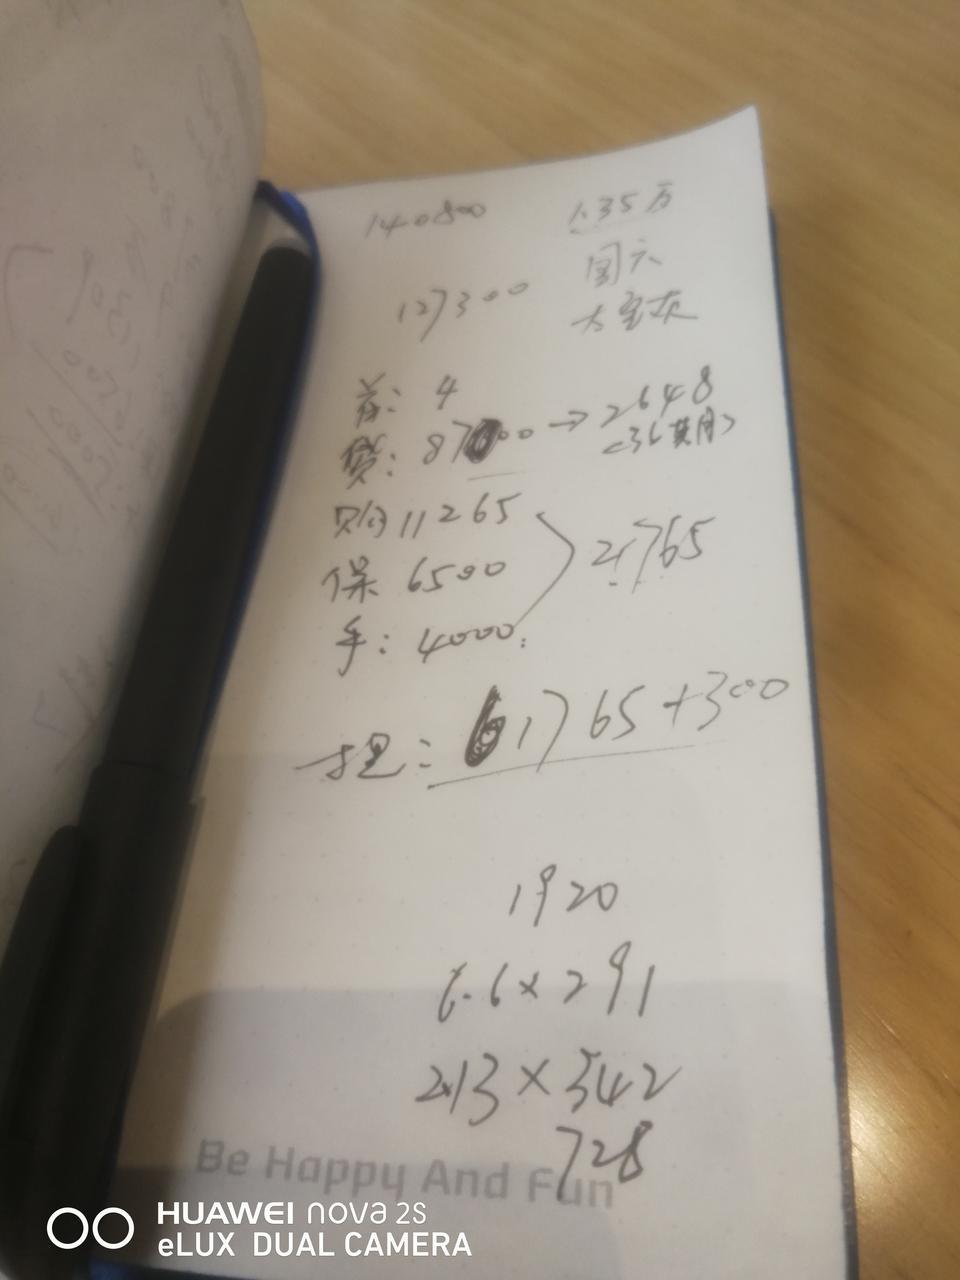 140800 1.35万
127300 周六
大宝灰
首: 4
贷: 87000 → 2648
<36期>
购 11265
保 6500 21765
手: 4000
提: 61765+300
1920
6.6×291
2.13×342
728
Be Happy And Fun
HUAWEI nova 2s
eLUX DUAL CAMERA